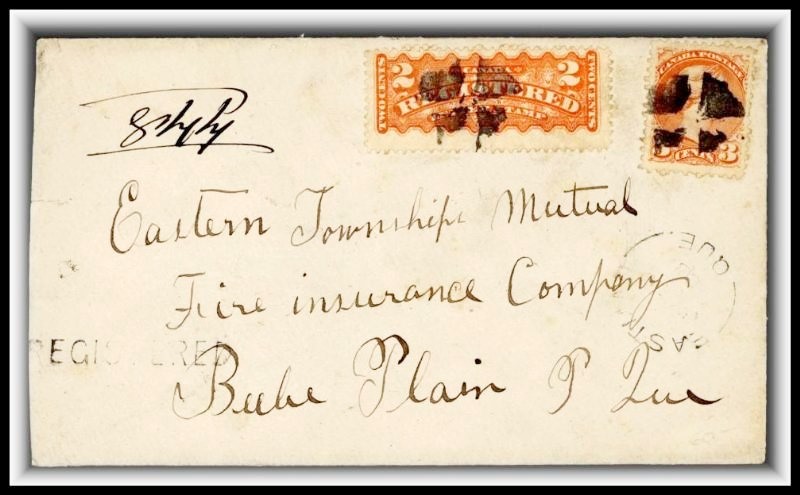 2 CANADA 2
TWO CENTS REGISTERED TWO CENTS
STAMP
CANADA POSTAGE
3 CENTS 3
Eastern Townships Mutual
Fire insurance Company
QUE.
EAST
REGISTERED
Beebe Plain P Que